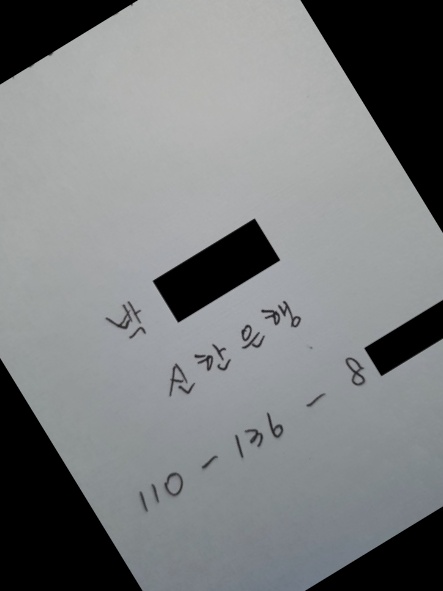 신한은행
110 - 136 - 8